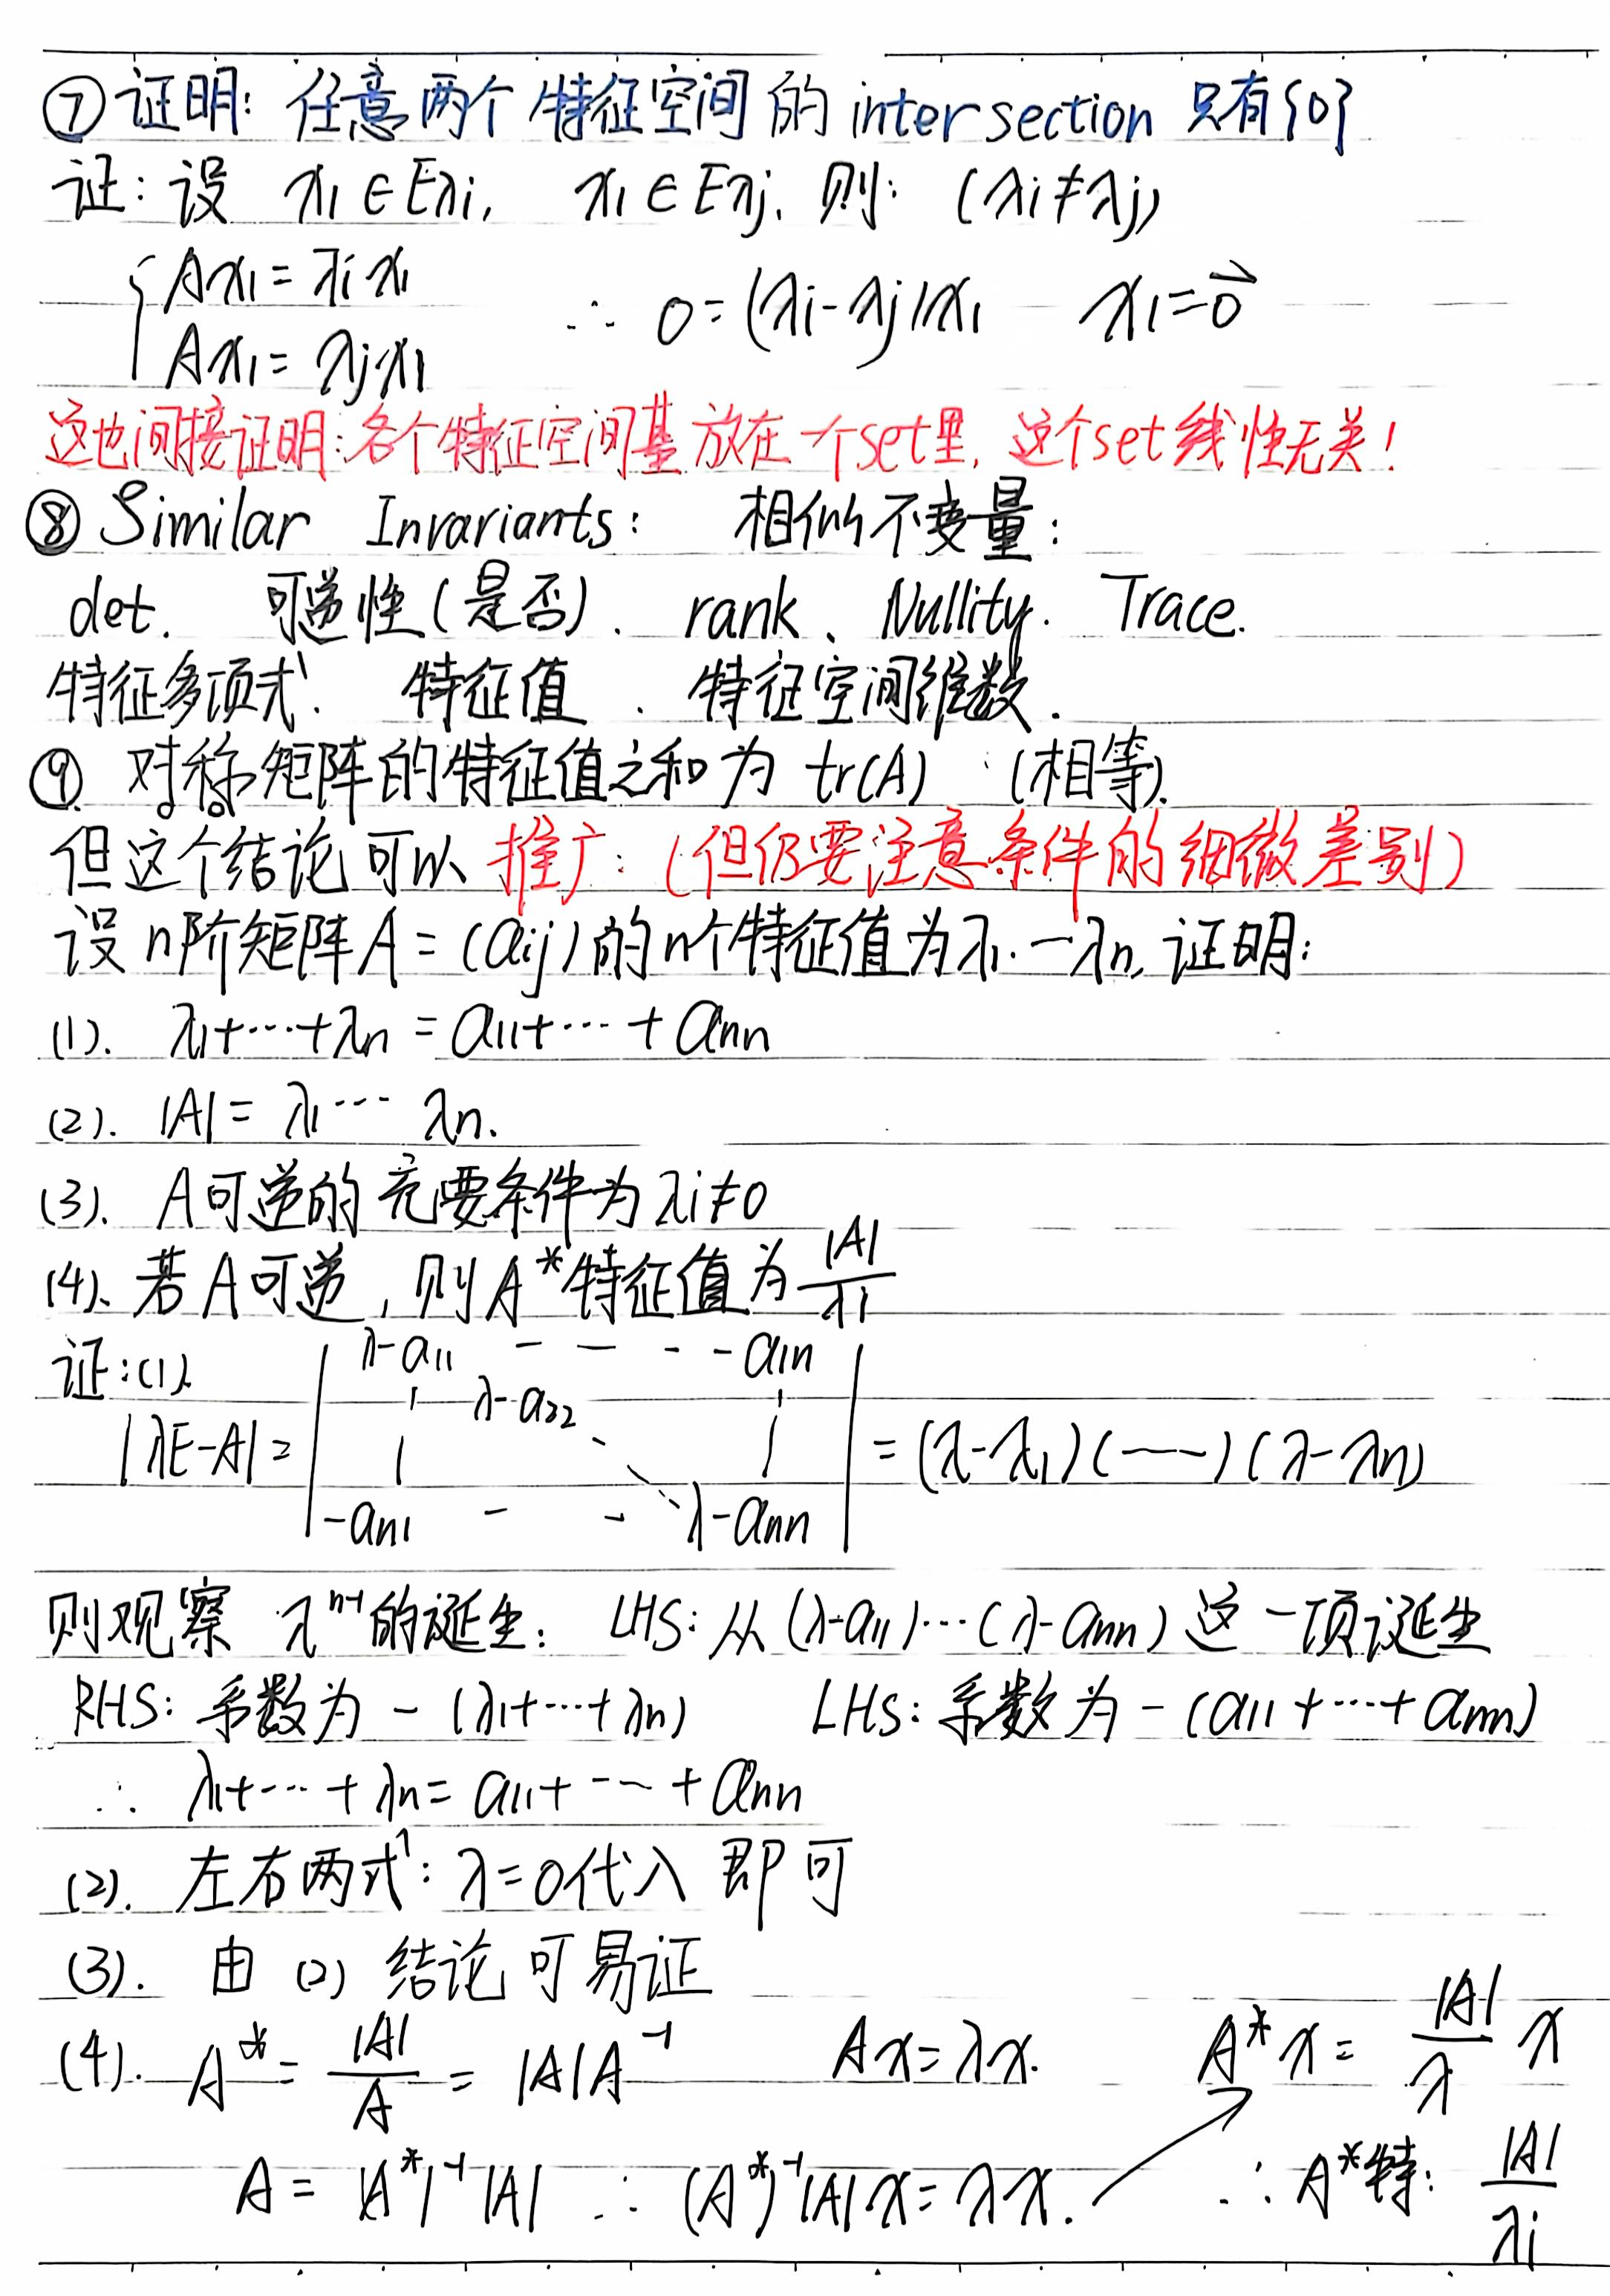 ⑦ 证明: 任意两个特征空间的 intersection 只有{0}
证: 设 x₁∈Eλi, x₁∈Eλj. 则: (λi≠λj)
{ Ax₁ = λi x₁
Ax₁ = λj x₁ ∴ 0 = (λi-λj)x₁ x₁ = 0⃗
这也间接证明: 各个特征空间基放在一个set里, 这个set线性无关!
⑧ Similar Invariants: 相似不变量:
det. 可逆性(是否). rank、Nullity. Trace.
特征多项式. 特征值. 特征空间维数.
⑨ 对称矩阵的特征值之和为 tr(A) (相等).
但这个结论可以推广: (但仍要注意条件的细微差别)
设n阶矩阵A = (aij)的n个特征值为λ₁.…λn, 证明:
(1). λ₁+⋯+λn = a₁₁+⋯+ann
(2). |A| = λ₁⋯λn.
(3). A可逆的充要条件为λi≠0
(4). 若A可逆, 则A*特征值为 |A|/λi
证: (1).
|λE-A| = | λ-a₁₁ - - - -a₁n
λ-a₂₂
-an₁ - - λ-ann | = (λ-λ₁)(⋯)(λ-λn)
则观察 λⁿ⁻¹的诞生: LHS: 从(λ-a₁₁)⋯(λ-ann)这一项诞生
RHS: 系数为 -(λ₁+⋯+λn) LHS: 系数为 -(a₁₁+⋯+ann)
∴ λ₁+⋯+λn = a₁₁+⋯+ann
(2). 左右两式: λ=0代入即可
(3). 由(2)结论可易证
(4). A* = |A|/A = |A|A⁻¹ Ax=λx. A*x = |A|/λ x
A = (A*)⁻¹|A| ∴ (A*)⁻¹|A|x=λx. ∴ A*特: |A|/λi